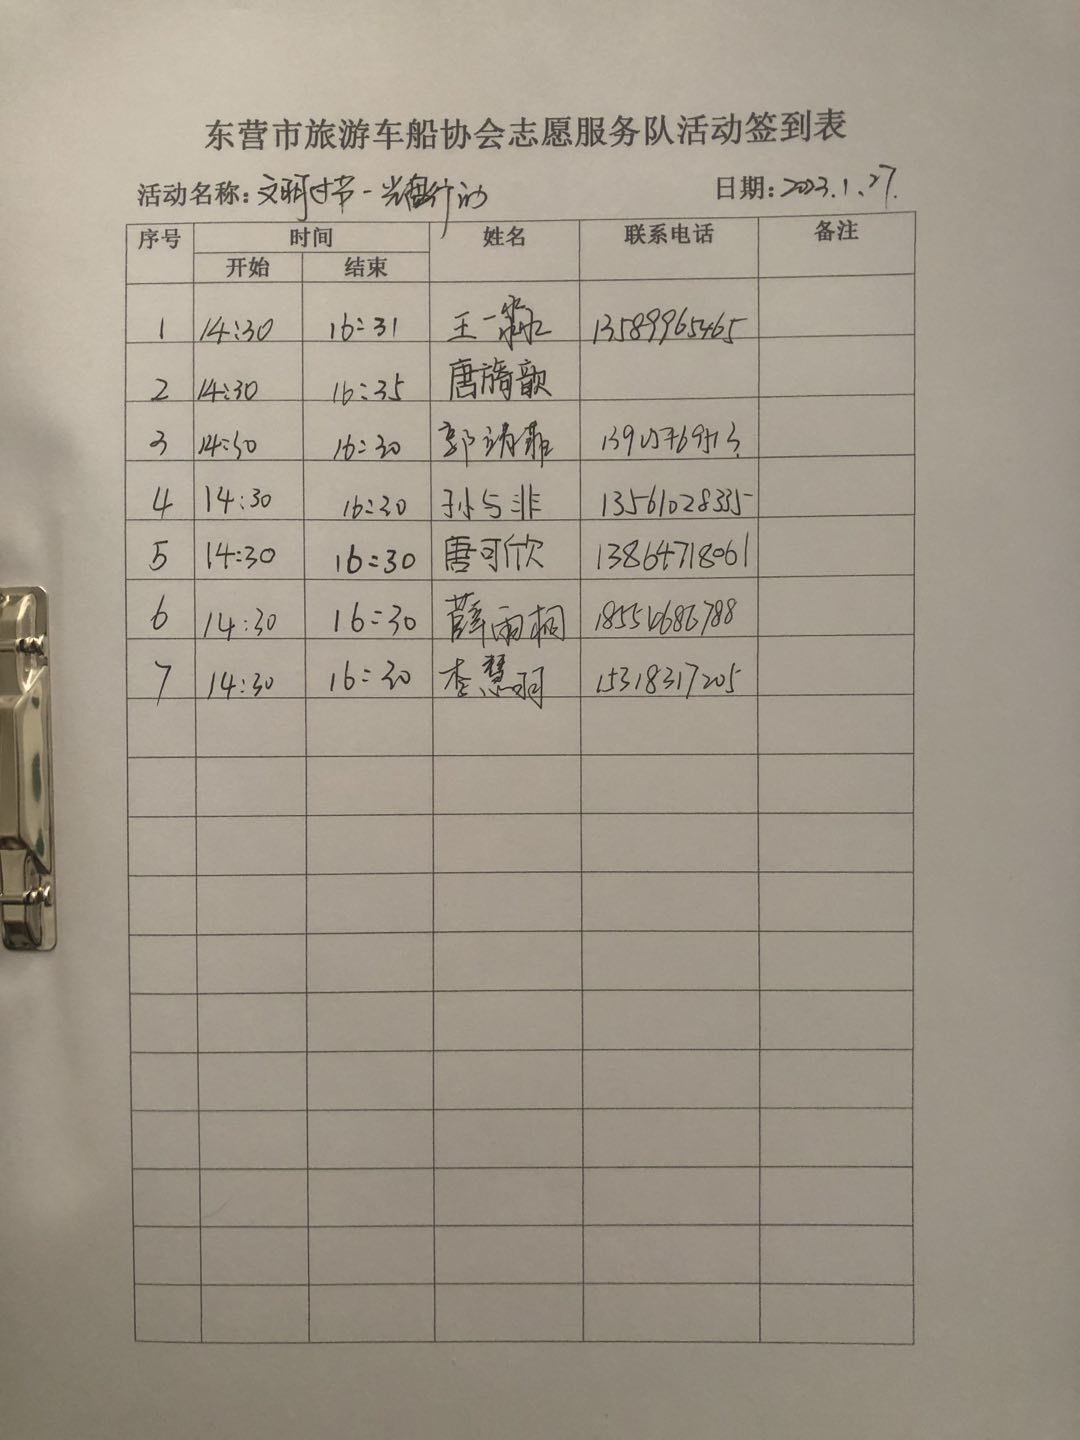 东营市旅游车船协会志愿服务队活动签到表
活动名称: 文明过节-光盘行动 日期: 2023.1.27.
序号 时间 姓名 联系电话 备注
开始 结束
1 14:30 16:31 王一 13589965465
2 14:30 16:35 唐旖歆
3 14:30 16:30 郭靖菲
4 14:30 16:30 孙与非 13561028335
5 14:30 16:30 唐可欣 13864718061
6 14:30 16:30 薛雨桐
7 14:30 16:30 李慧羽 15318317205